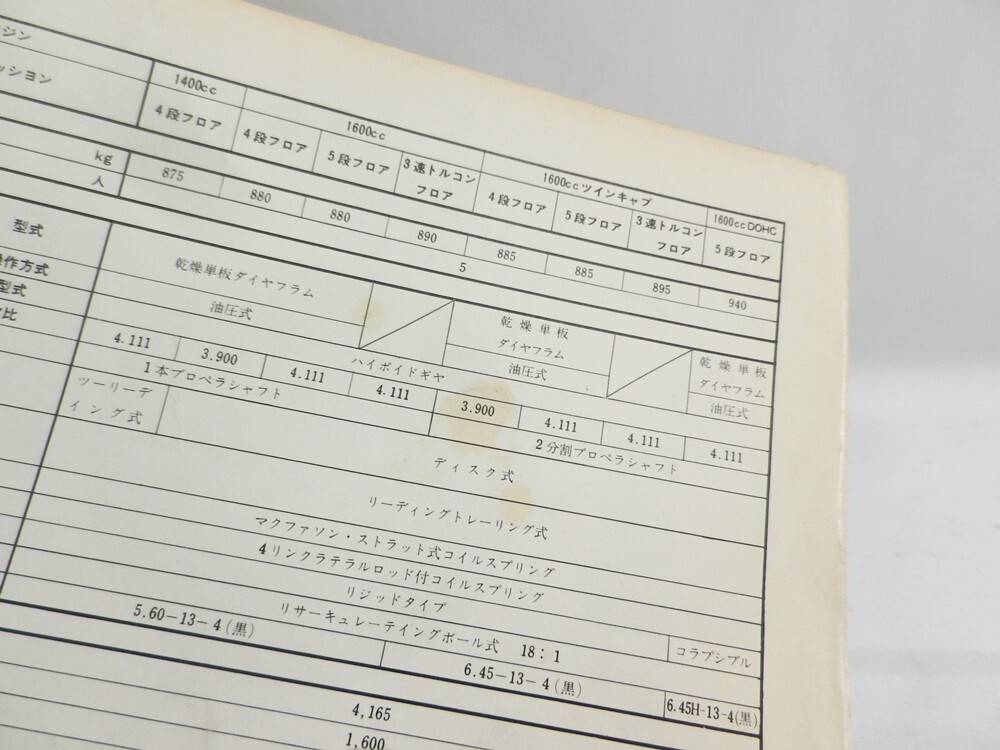 ジン 1400cc 1600cc 1600ccツインキャブ 1600ccDOHC
ッション 4段フロア 4段フロア 5段フロア 3速トルコンフロア 4段フロア 5段フロア 3速トルコンフロア 5段フロア
kg 875 880 880 890 885 885 895 940
人 5
型式 乾燥単板ダイヤフラム 乾燥単板ダイヤフラム 乾燥単板ダイヤフラム
作方式 油圧式 油圧式 油圧式
型式 ハイポイドギヤ
比 4.111 3.900 4.111 4.111 3.900 4.111 4.111 4.111
1本プロペラシャフト 2分割プロペラシャフト
ツーリーディング式 ディスク式
リーディングトレーリング式
マクファソン・ストラット式コイルスプリング
4リンクラテラルロッド付コイルスプリング
リジッドタイプ
リサーキュレーテイングボール式 18:1 コラプシブル
5.60-13-4(黒) 6.45-13-4(黒) 6.45H-13-4(黒)
4,165
1,600